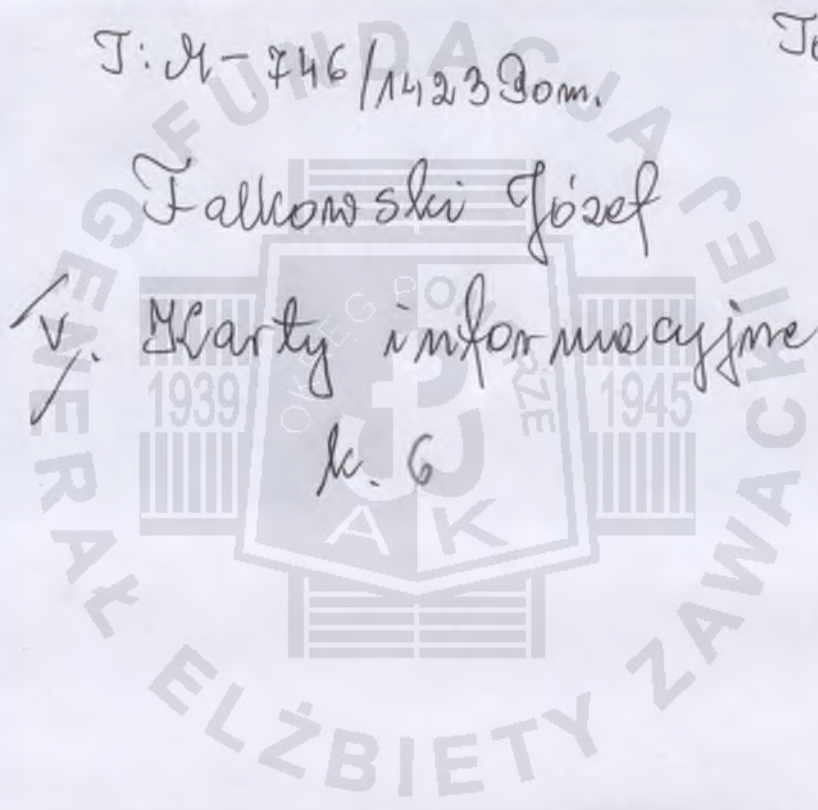 T: M-746/1423 Pom.
Falkowski Józef
V. Karty informacyjne
k. 6
FUNDACJA GENERAŁ ELŻBIETY ZAWACKIEJ
OKRĘG POMORZE
1939
1945
AK